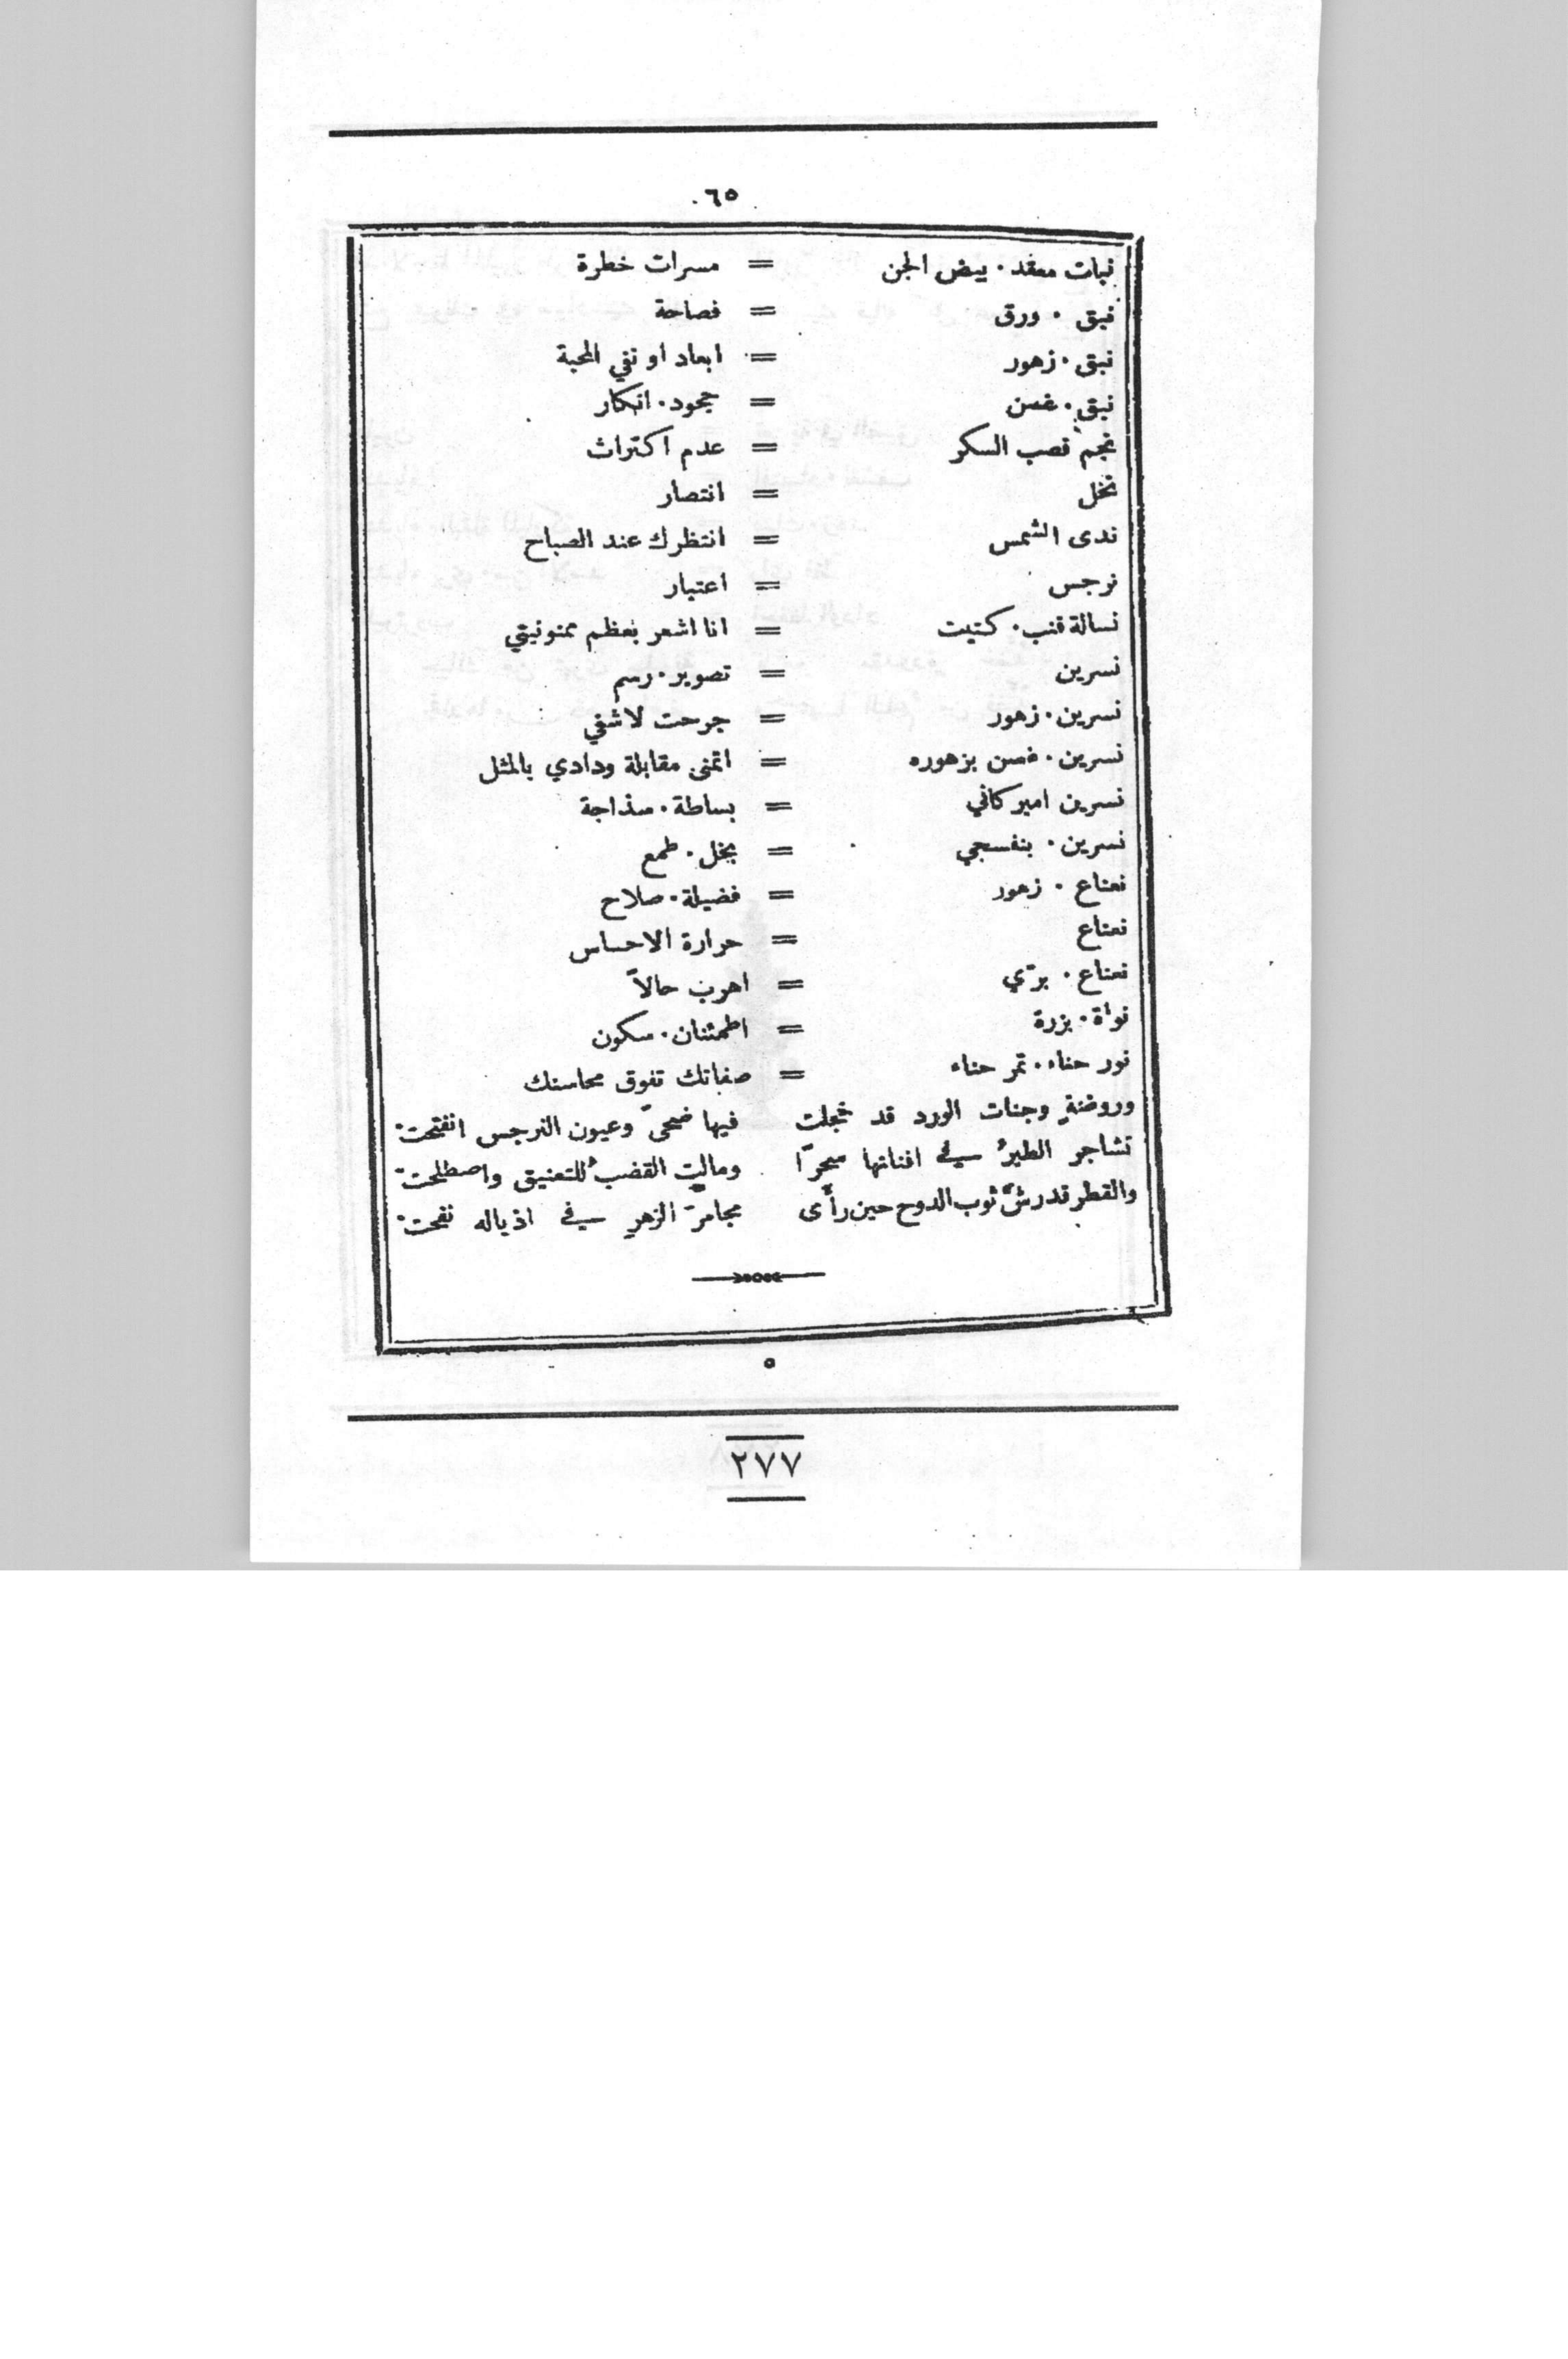 ٦٥
نبات معقد. بيض الجن = مسرات خطرة
نبق. ورق = فصاحة
نبق. زهور = ابعاد او نفي المحبة
نبق. غصن = جحود. انكار
نجم قصب السكر = عدم اكتراث
نخل = انتصار
ندى الشمس = انتظرك عند الصباح
نرجس = اعتبار
نسالة قنب. كتيت = انا اشعر بعظم ممنونيتي
نسرين = تصوير. رسم
نسرين. زهور = جرحت لاشفي
نسرين. غصن بزهوره = اتمنى مقابلة ودادي بالمثل
نسرين اميركاني = بساطة. سذاجة
نسرين. بنفسجي = بخل. طمع
نعناع. زهور = فضيلة. صلاح
نعناع = حرارة الاحساس
نعناع. برّي = اهرب حالاً
نواة. بزرة = اطمئنان. سكون
نور حناء. تمر حناء = صفاتك تفوق محاسنك
وروضةٍ وجنات الورد قد خجلت فيها ضحىً وعيون النرجس انفتحتْ
تشاجر الطيرُ في افنانها سحرًا ومالت القضبُ للتعنيق واصطلحتْ
والقطر قد رشَّ ثوب الدوح حين رأى مجامرَ الزهرِ في اذياله نفحتْ
٥
٢٧٧